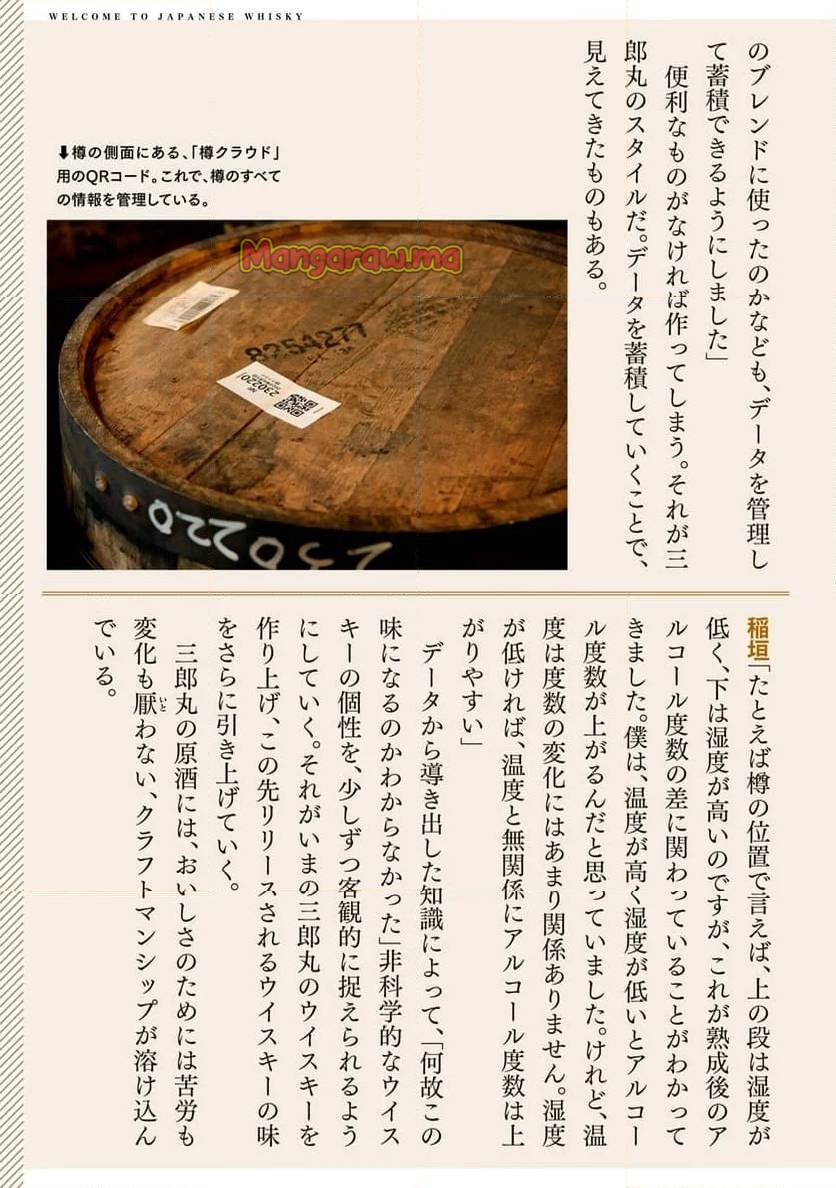 WELCOME TO JAPANESE WHISKY
のブレンドに使ったのかなども、データを管理し
て蓄積できるようにしました」
便利なものがなければ作ってしまう。それが三
郎丸のスタイルだ。データを蓄積していくことで、
見えてきたものもある。
⬇樽の側面にある、「樽クラウド」
用のQRコード。これで、樽のすべて
の情報を管理している。
Mangaraw.ma
8254277
230220
230220
稲垣「たとえば樽の位置で言えば、上の段は湿度が
低く、下は湿度が高いのですが、これが熟成後のア
ルコール度数の差に関わっていることがわかって
きました。僕は、温度が高く湿度が低いとアルコー
ル度数が上がるんだと思っていました。けれど、温
度は度数の変化にはあまり関係ありません。湿度
が低ければ、温度と無関係にアルコール度数は上
がりやすい」
データから導き出した知識によって、「何故この
味になるのかわからなかった」非科学的なウイス
キーの個性を、少しずつ客観的に捉えられるよう
にしていく。それがいまの三郎丸のウイスキーを
作り上げ、この先リリースされるウイスキーの味
をさらに引き上げていく。
三郎丸の原酒には、おいしさのためには苦労も
変化も厭わない、クラフトマンシップが溶け込ん
いと
でいる。